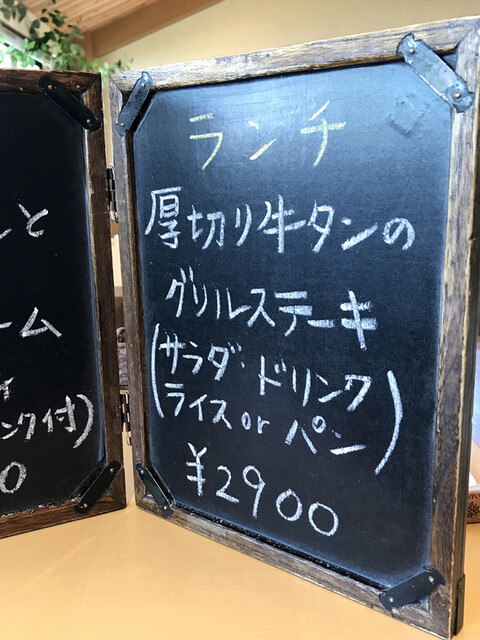 と
ーム
ンク付)
0
ランチ
厚切り牛タンの
グリルステーキ
(サラダ・ドリンク
ライス or パン)
¥2900